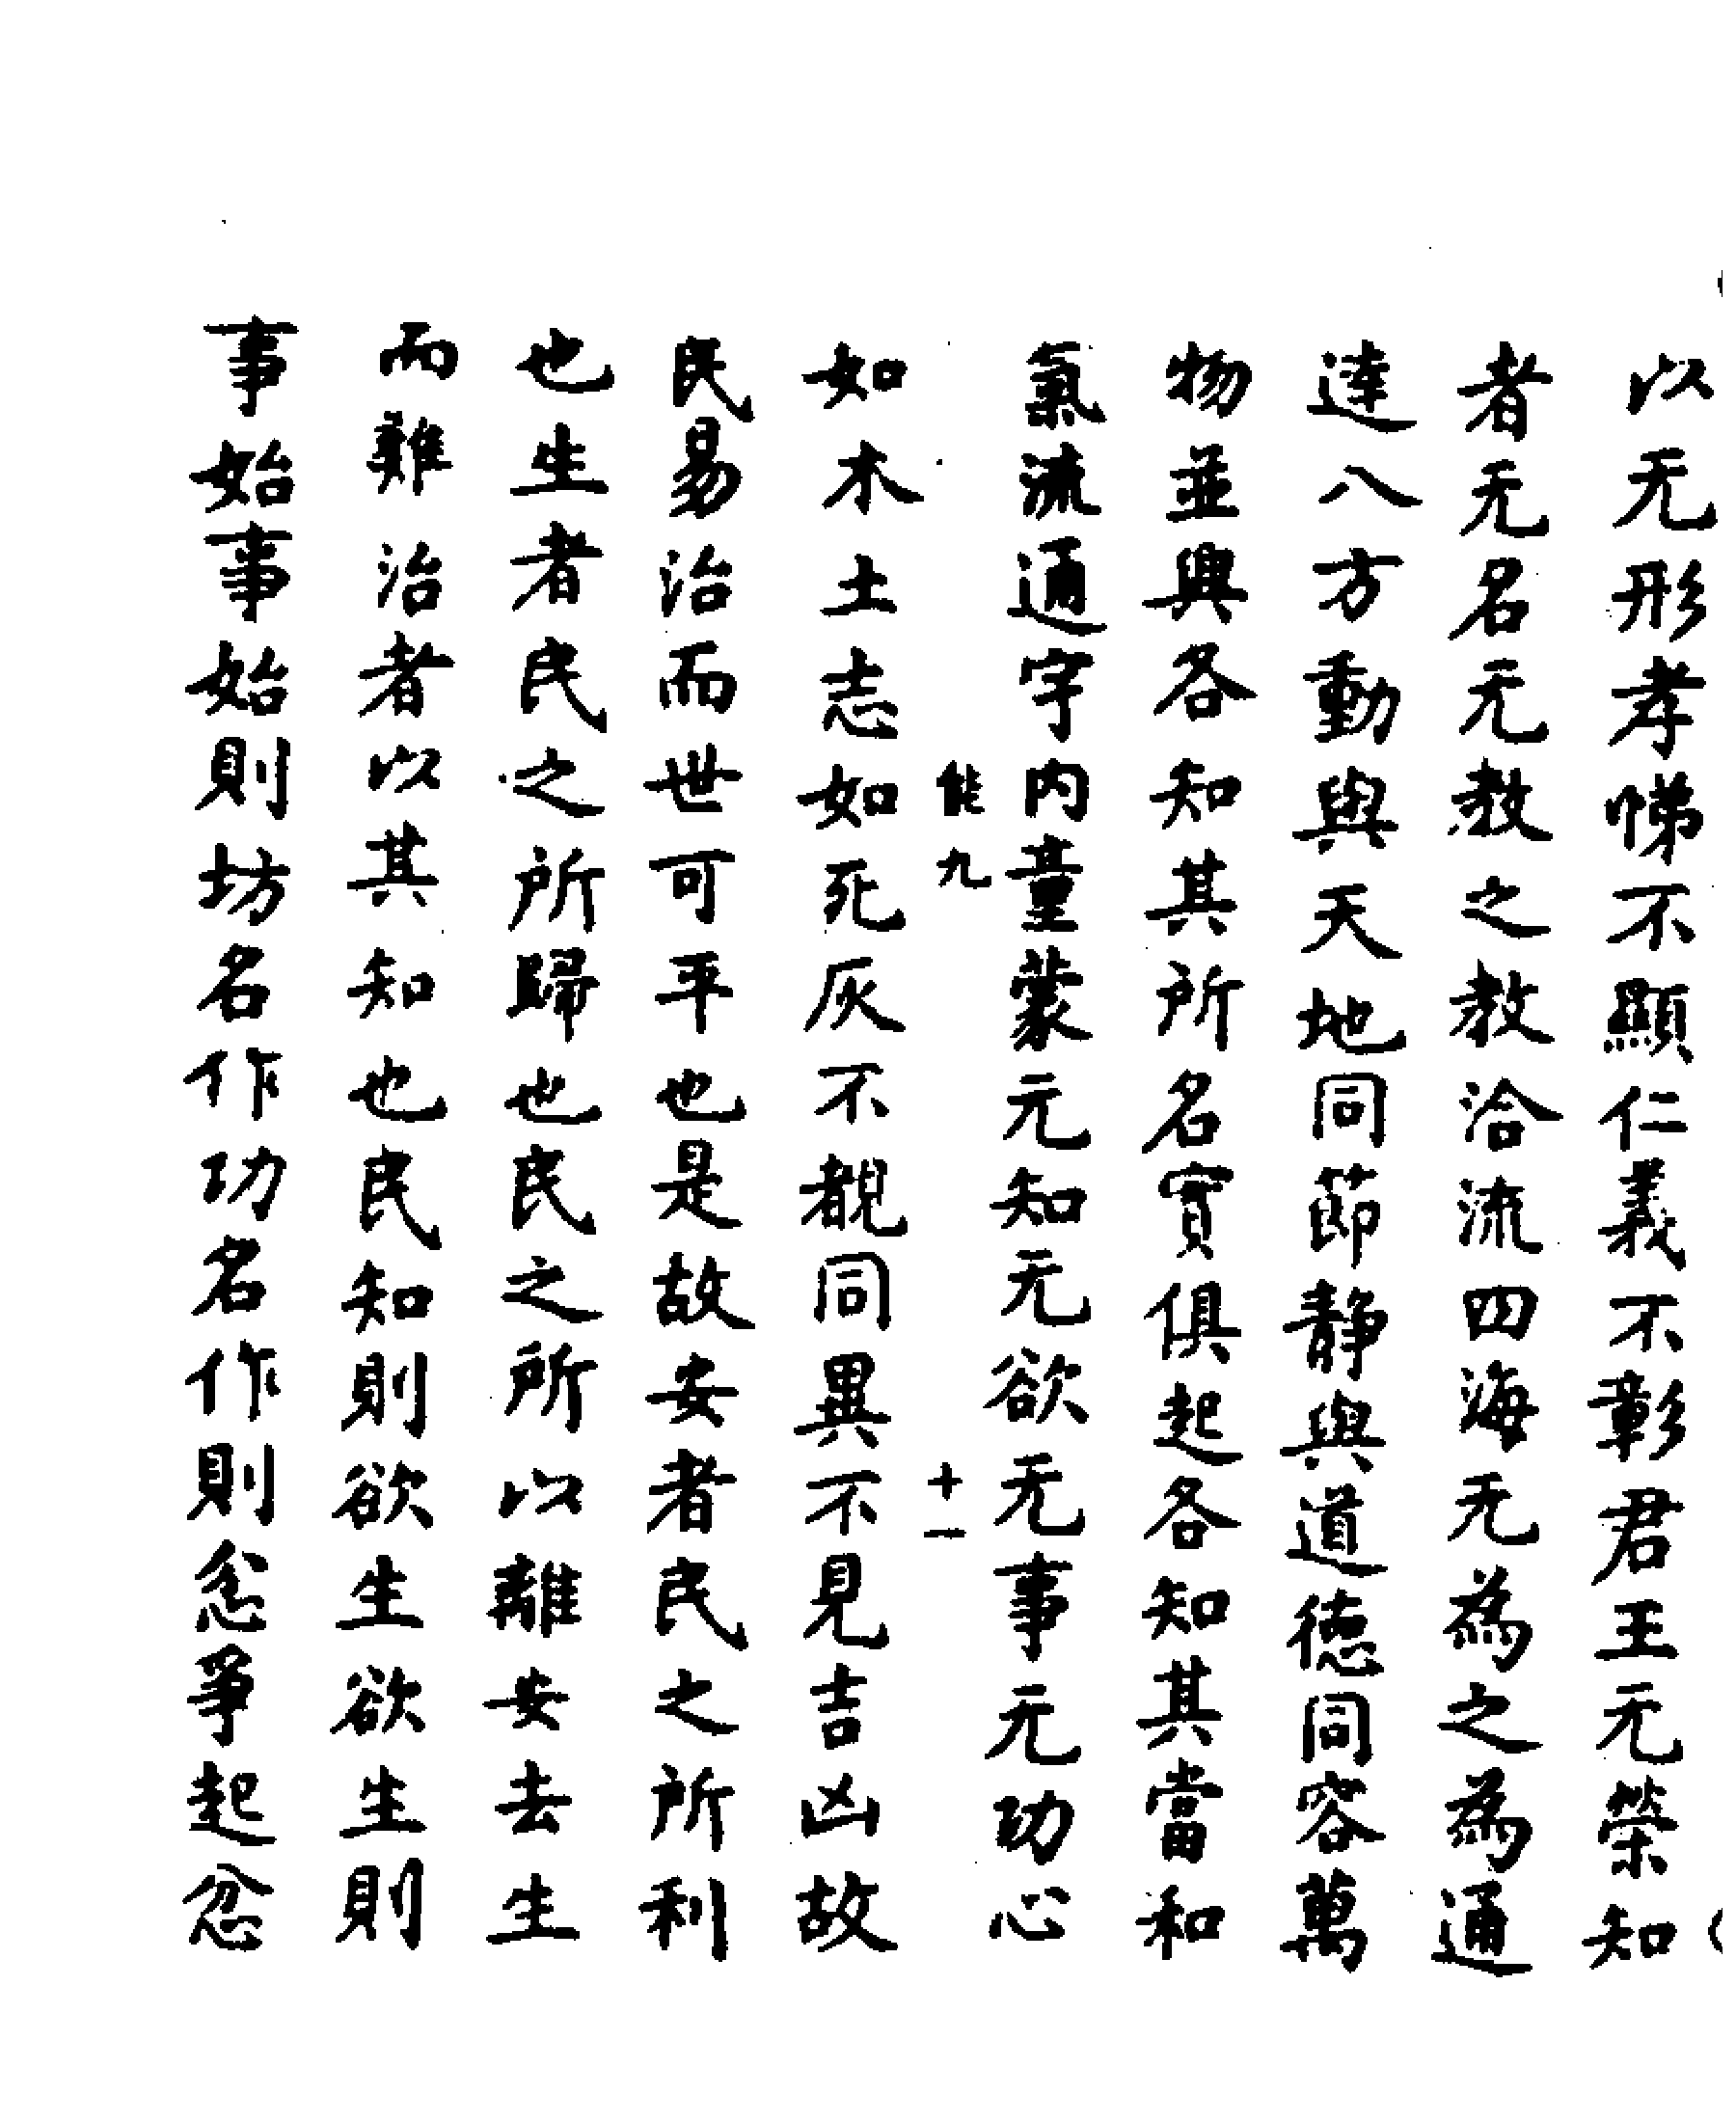 以无形孝悌不顯仁義不彰君王无榮知
者无名无教之教洽流四海无為之為通
達八方動與天地同節靜與道德同容萬
物並興各知其所名實俱起各知其當和
氣流通宇内童蒙无知无欲无事无功心
能九 十一
如木土志如死灰不覩同異不見吉凶故
民易治而世可平也是故安者民之所利
也生者民之所歸也民之所以離安去生
而難治者以其知也民知則欲生欲生則
事始事始則坊名作功名作則忿爭起忿